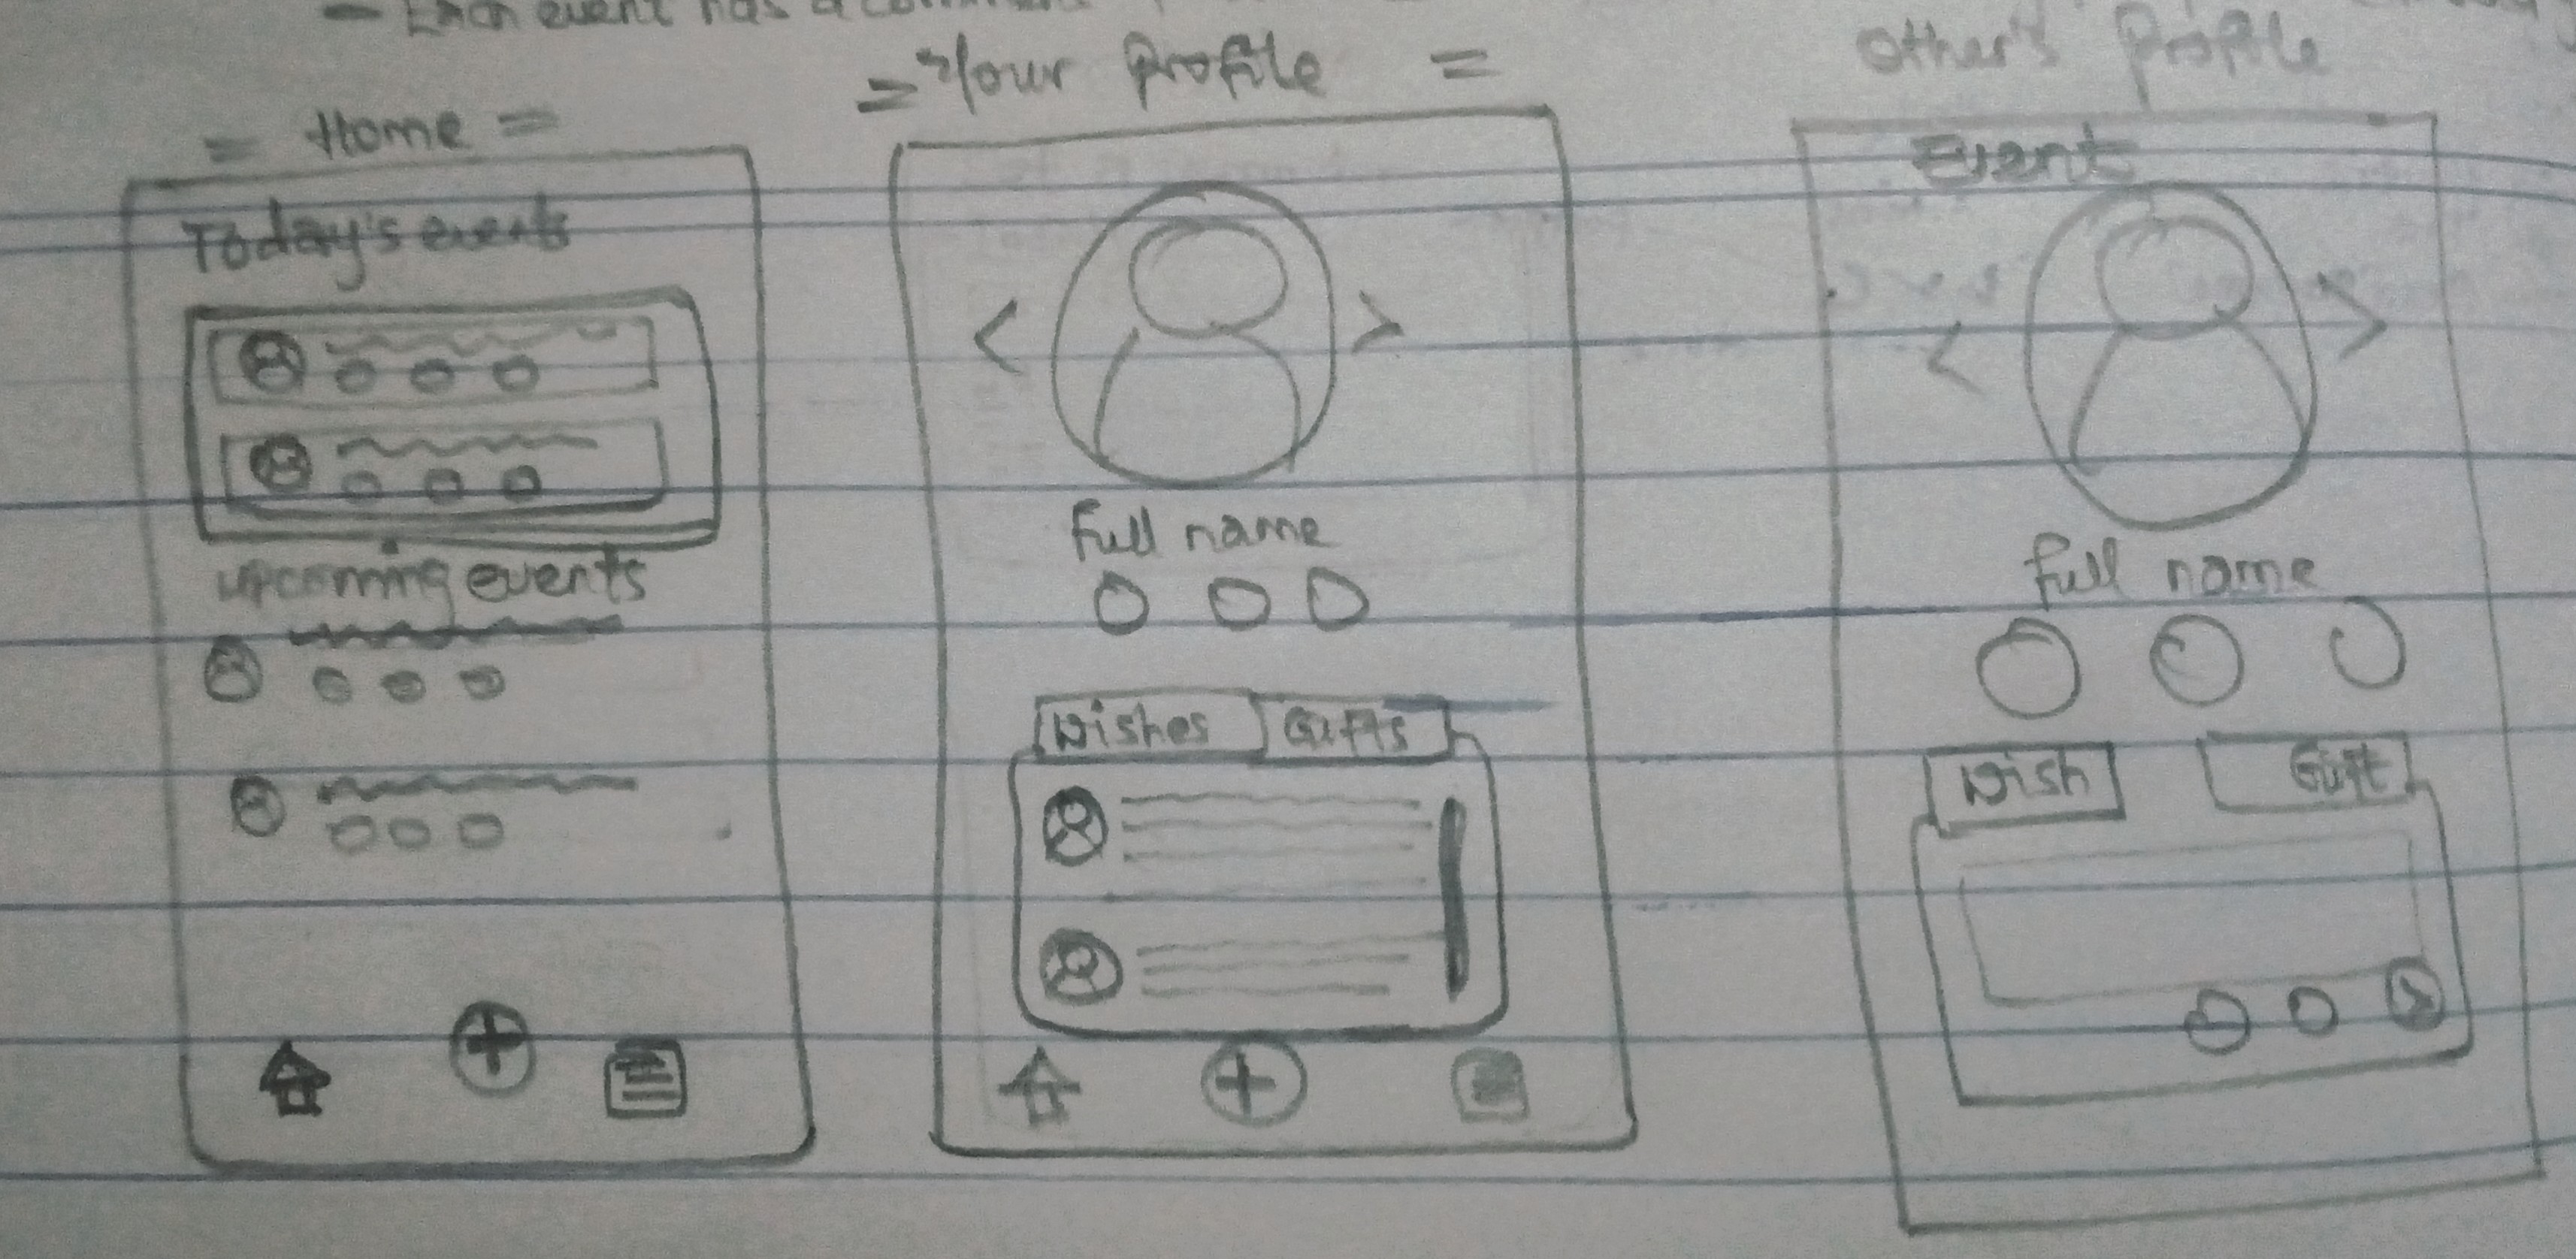 - Each event has a comment
= Home =
Today's events
upcoming events
= Your Profile =
Full name
Wishes Gifts
Other's Profile
Event
Full name
Wish Gift